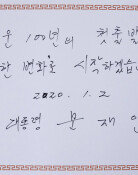 운 100년의 첫 출발
한 변화로 시작하겠습
2020. 1. 2
대통령 문 재 인